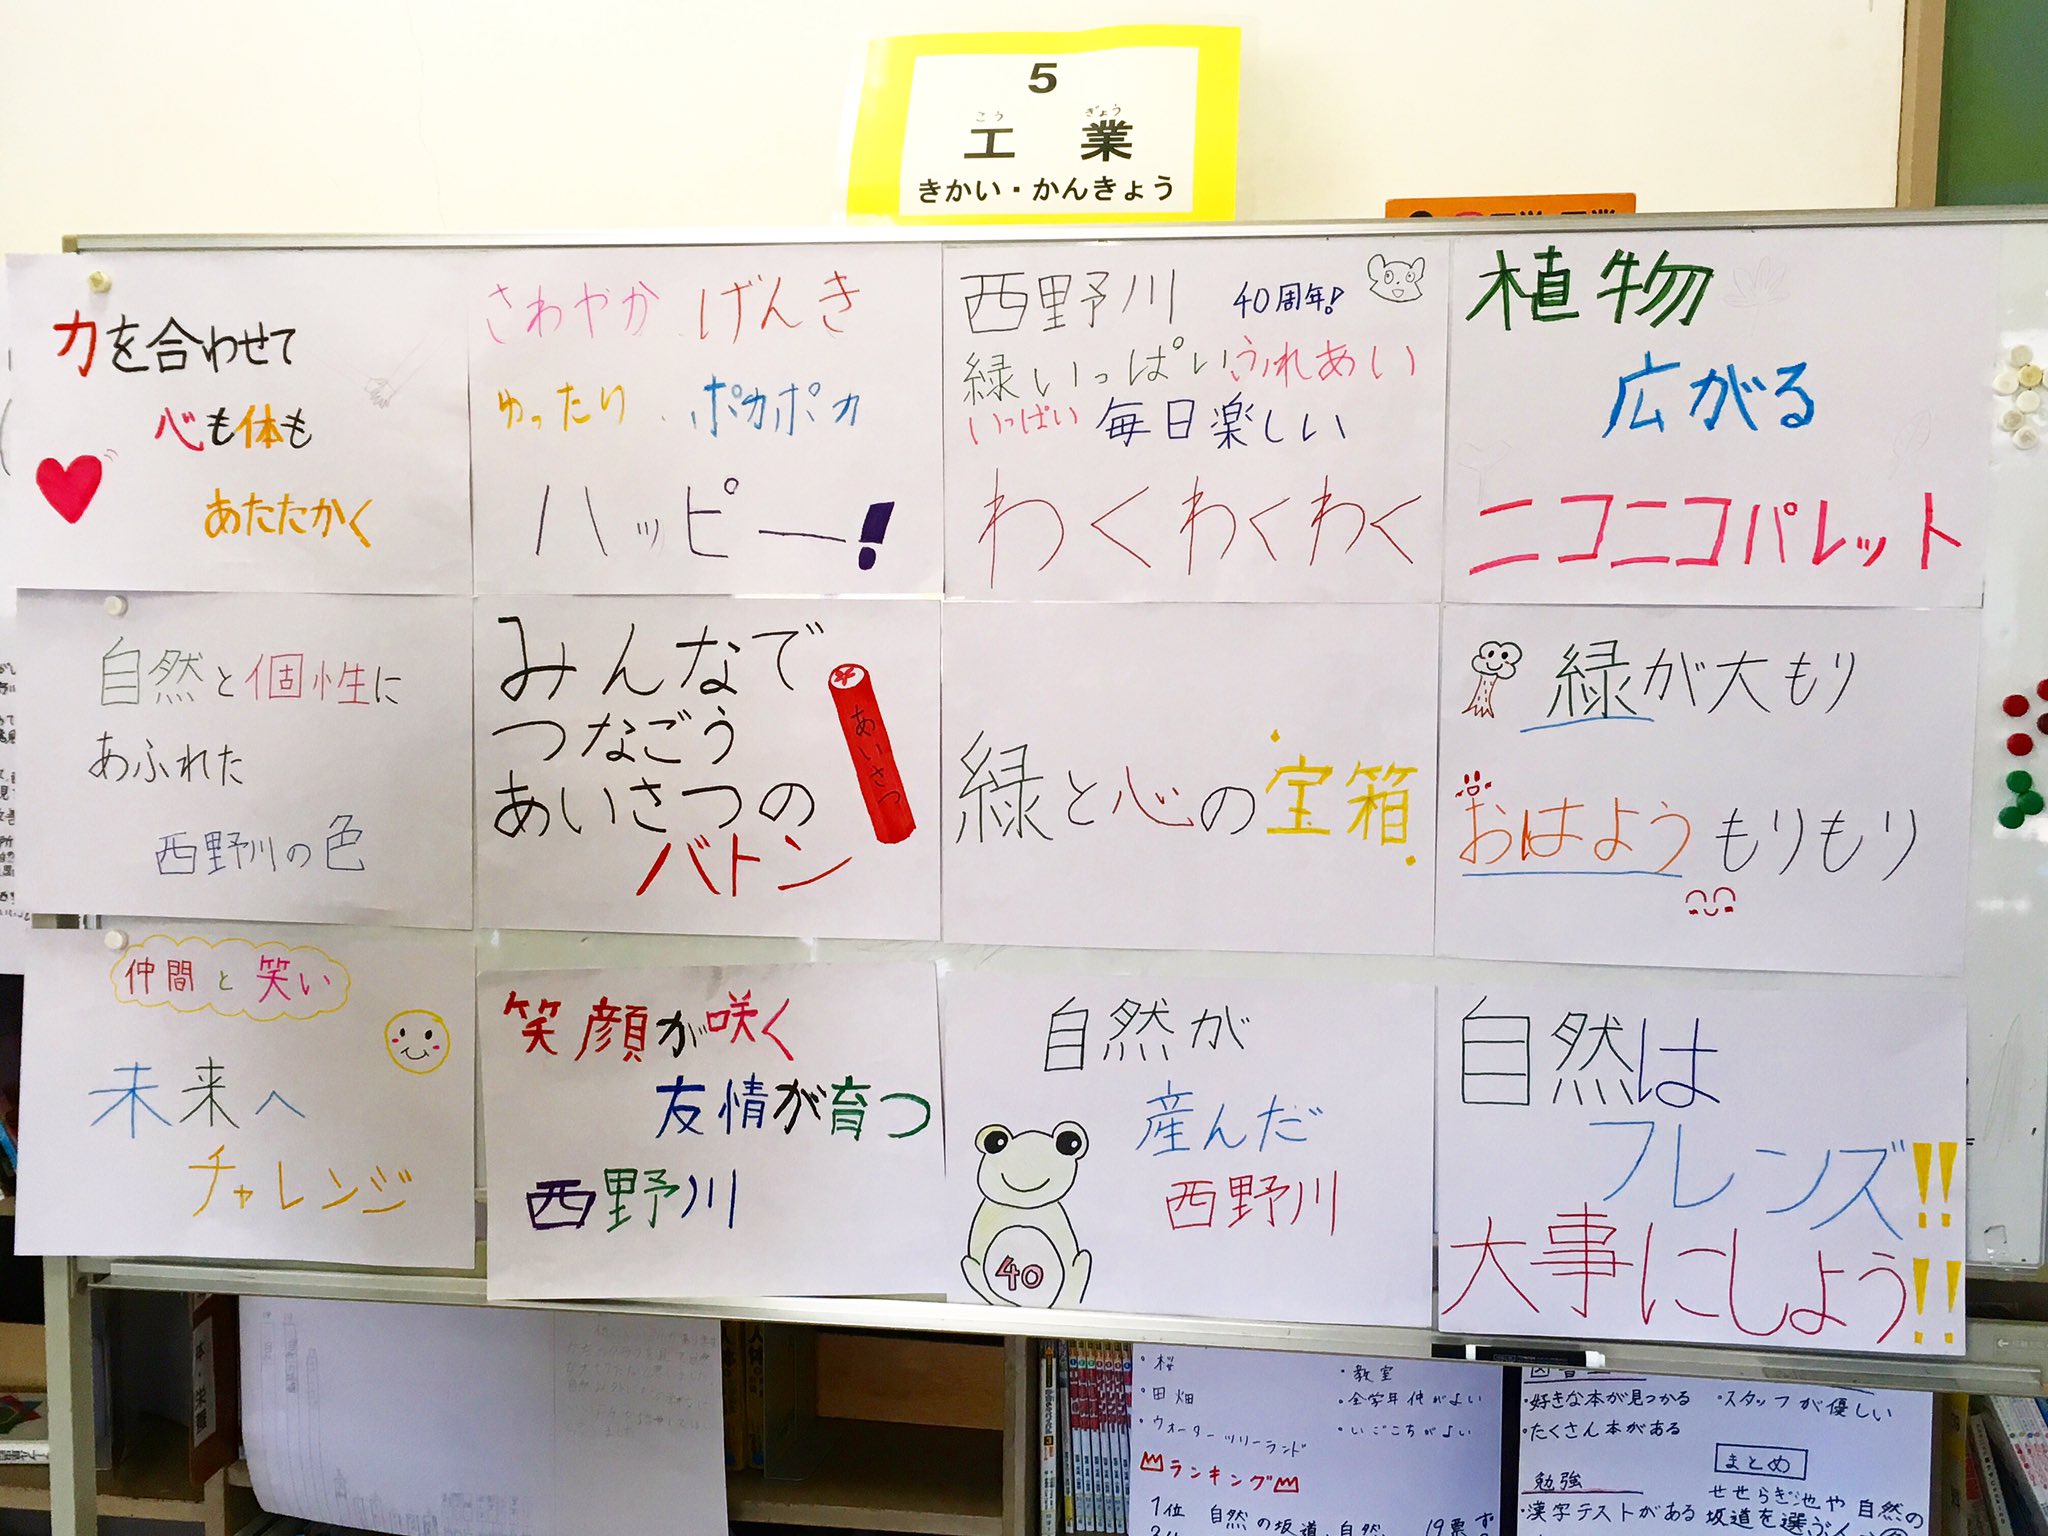 5
こう ぎょう
工業
きかい・かんきょう
力を合わせて
心も体も
あたたかく
さわやか げんき
ゆったり ポカポカ
ハッピー!
西野川 40周年!
緑いっぱいふれあい
いっぱい 毎日楽しい
わくわくわく
植物
広がる
ニコニコパレット
自然と個性に
あふれた
西野川の色
みんなで
つなごう
あいさつの
バトン
あいさつ
緑と心の宝箱
緑が大もり
おはようもりもり
仲間と笑い
未来へ
チャレンジ
笑顔が咲く
友情が育つ
西野川
自然が
産んだ
西野川
40
自然は
フレンズ!!
大事にしよう!!
・桜
・田畑
・ウォーターツリーランド
・教室
・全学年仲がよい
・いごこちがよい
ランキング
1位 自然の坂道、自然 19票
・好きな本が見つかる
・たくさん本がある
・スタッフが優しい
勉強
・漢字テストがある
まとめ
せせらぎ池や自然の
坂道を選ぶ